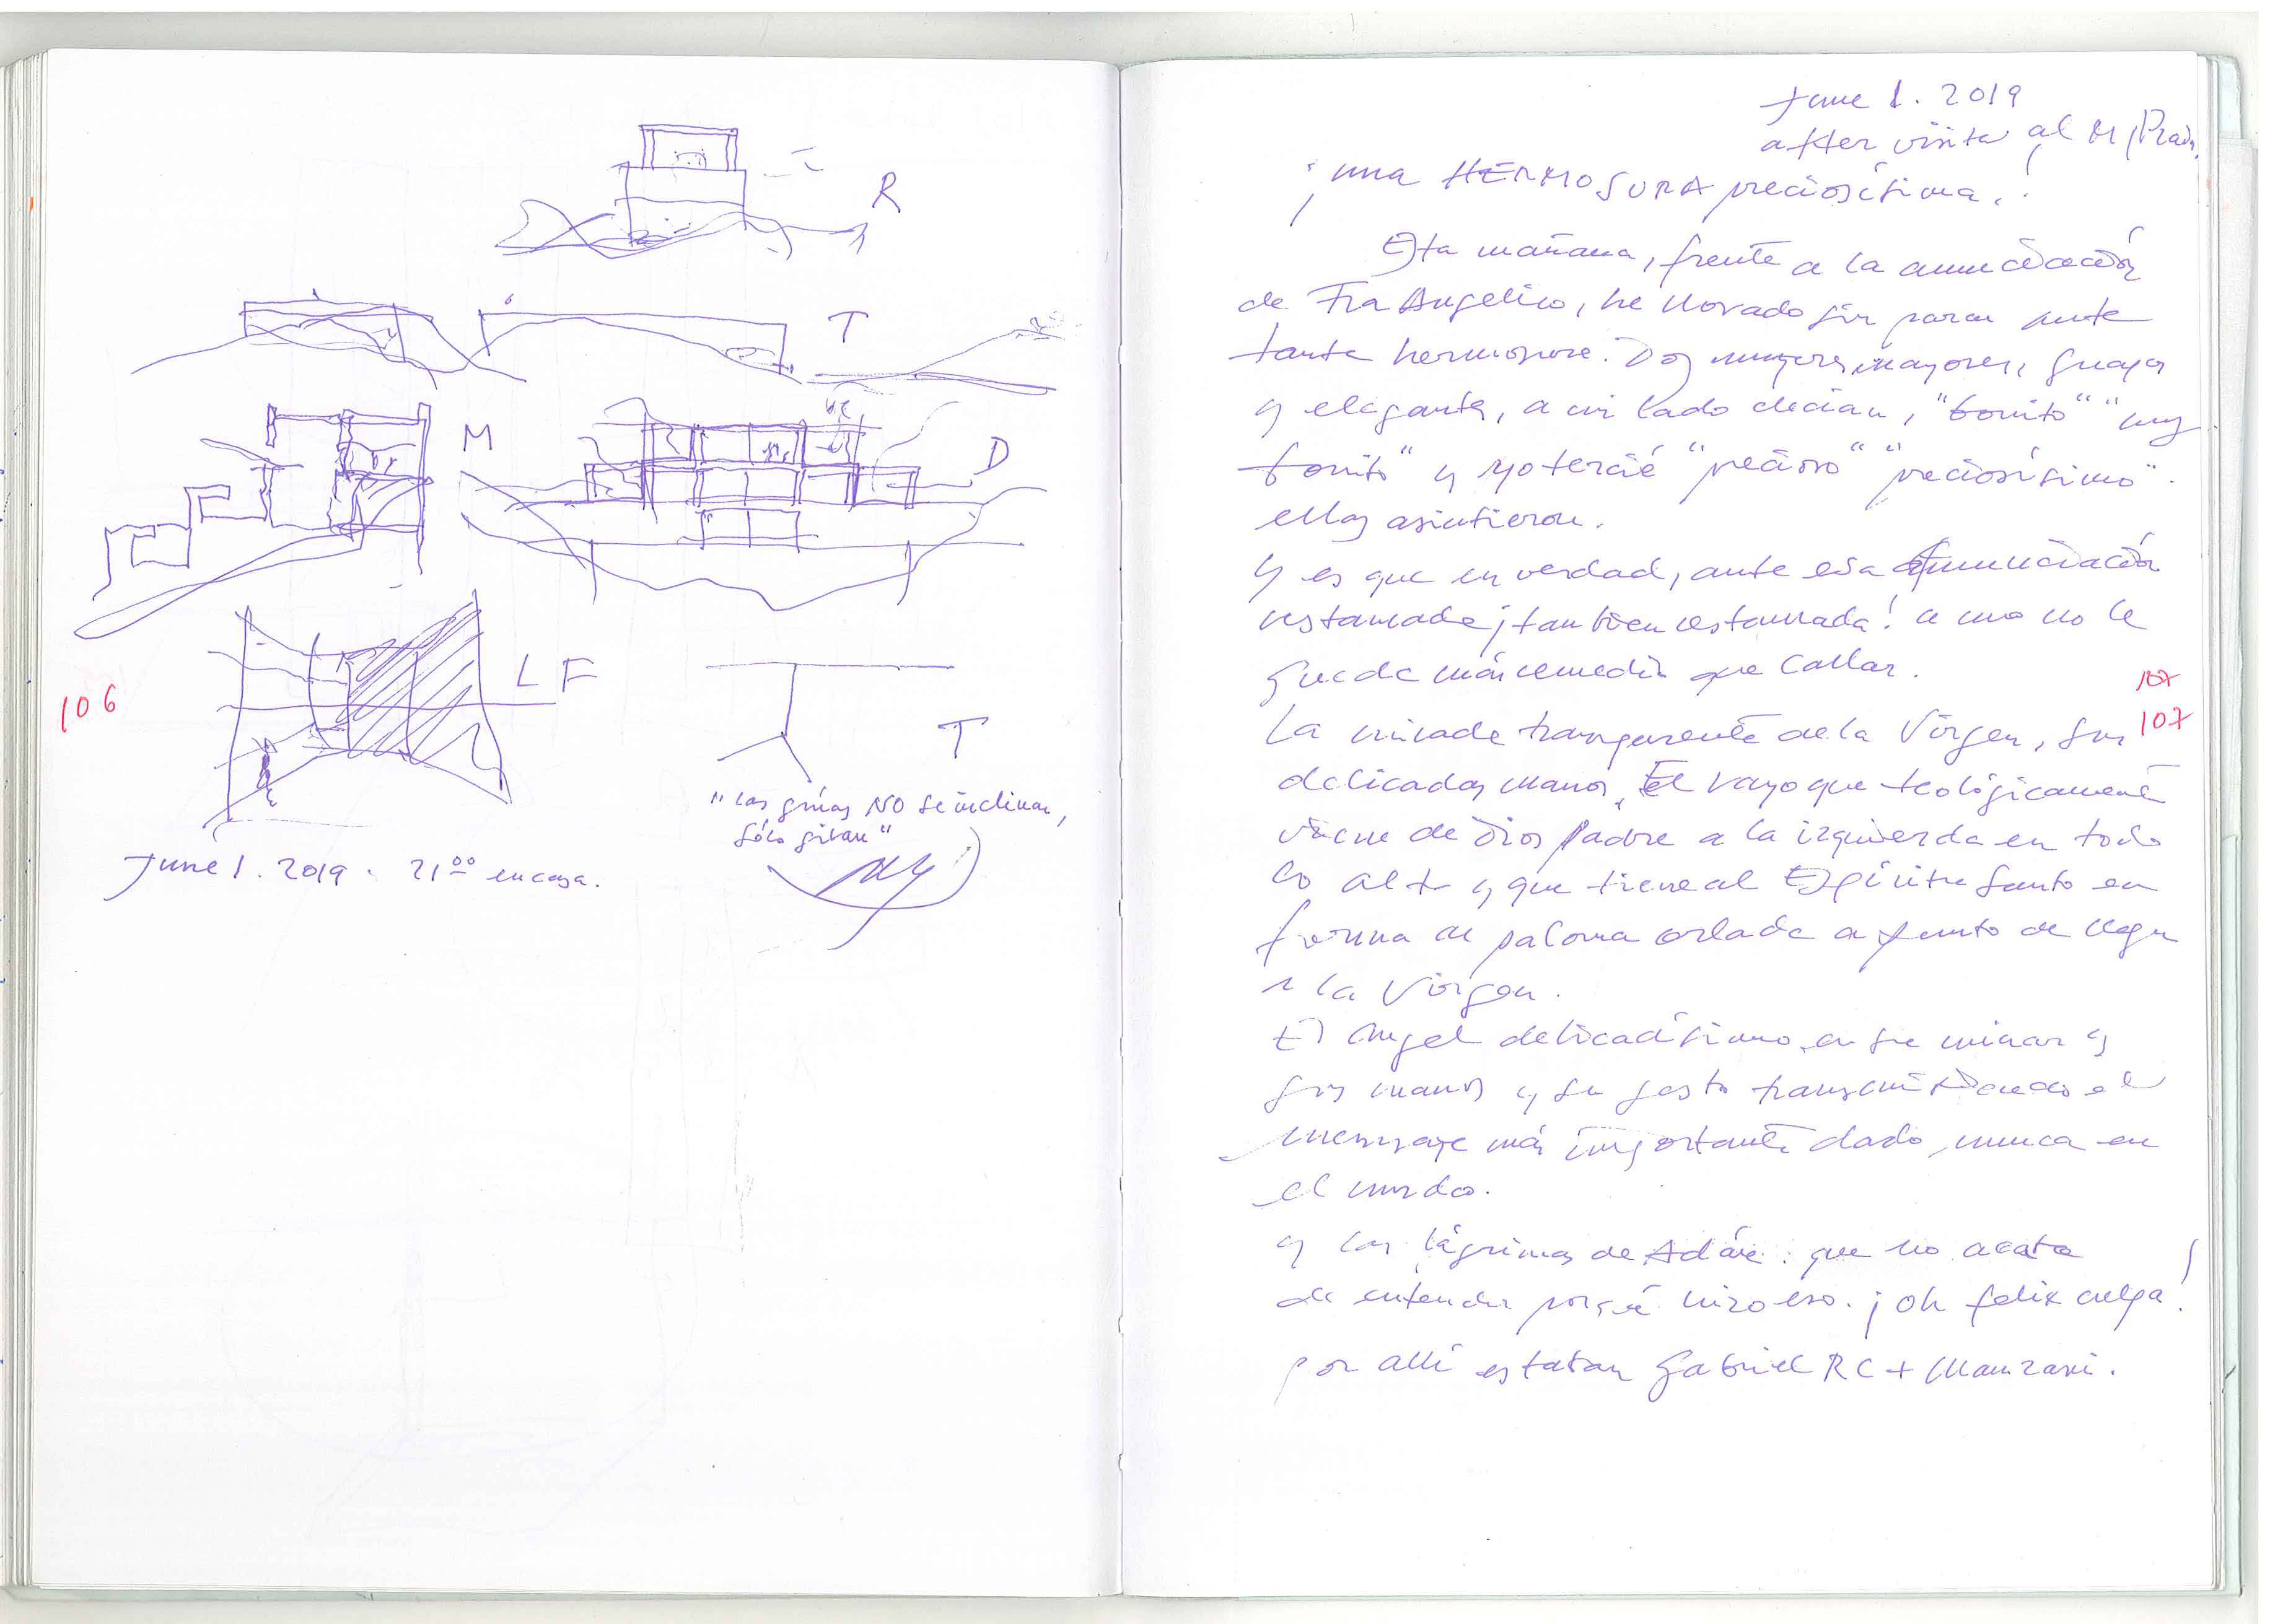 R
T
M
D
L F
T
106
"Las grúas NO se inclinan,
sólo giran"
June 1. 2019. 21:00 en casa.
June 1. 2019
after visita al M/Prado.
¡una HERMOSURA preciosísima!
Esta mañana, frente a la anunciación
de Fra Angelico, he llorado sin parar ante
tanta hermosura. Dos mujeres mayores, guapas
y elegantes, a mi lado decían, "bonito" "muy
bonito" y yo tercié "precioso" "preciosísimo".
ellas asintieron.
y es que en verdad, ante esa Anunciación
restaurada ¡tan bien restaurada! a uno no le
queda más remedio que callar.
107
107
La mirada transparente de la Virgen, sus
delicadas manos. El rayo que teológicamente
viene de Dios Padre a la izquierda en todo
lo alto y que tiene al Espíritu Santo en
forma de paloma orlada a punto de llegar
a la Virgen.
El Angel delicadísimo en su mirar y
sus manos y su gesto transmitiendo el
mensaje más importante dado nunca en
el mundo.
y las lágrimas de Adán: que no acaba
de entender porqué hizo eso. ¡Oh felix culpa!
por allí estaban Gabriel RC +